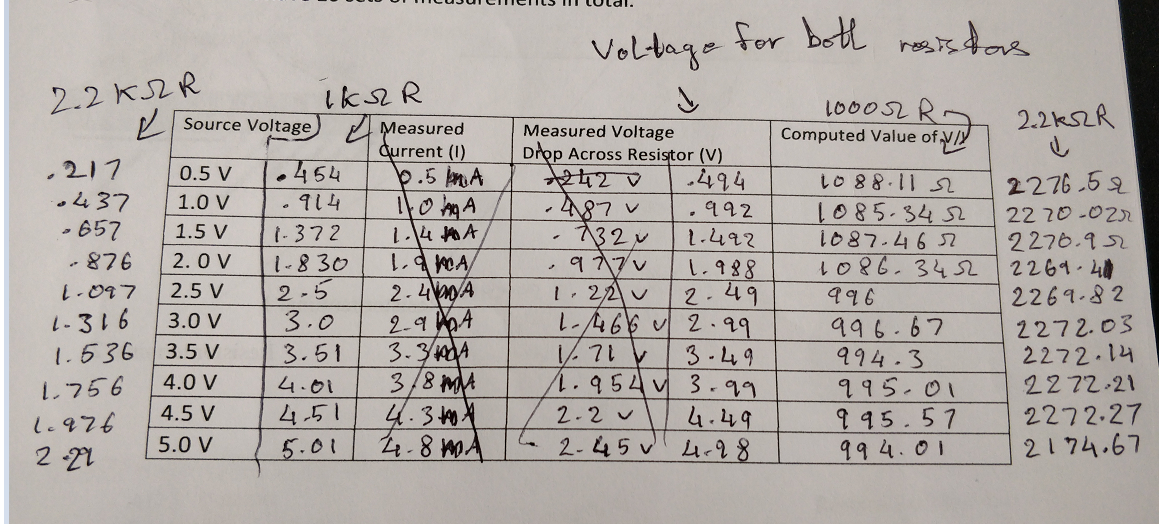 sets of measurements in total.
Voltage for both resistors
2.2 KΩ R 1KΩ R 1000Ω R 2.2KΩR
Source Voltage Measured Current (I) Measured Voltage Drop Across Resistor (V) Computed Value of V/I
.217 0.5 V .454 0.5 mA .242 v .494 1088.11 Ω 2276.5Ω
.437 1.0 V .914 1.0 mA .487 v .992 1085.34 Ω 2270.02Ω
.657 1.5 V 1.372 1.4 mA .732 v 1.492 1087.46 Ω 2270.9Ω
.876 2.0 V 1.830 1.9 mA .977 v 1.988 1086.34 Ω 2269.41
1.097 2.5 V 2.5 2.4 mA 1.22 v 2.49 996 2269.82
1.316 3.0 V 3.0 2.9 mA 1.466 v 2.99 996.67 2272.03
1.536 3.5 V 3.51 3.3 mA 1.71 v 3.49 994.3 2272.14
1.756 4.0 V 4.01 3.8 mA 1.954 v 3.99 995.01 2272.21
1.976 4.5 V 4.51 4.3 mA 2.2 v 4.49 995.57 2272.27
5.0 V 5.01 4.8 mA 2.45 v 4.98 994.01 2174.67